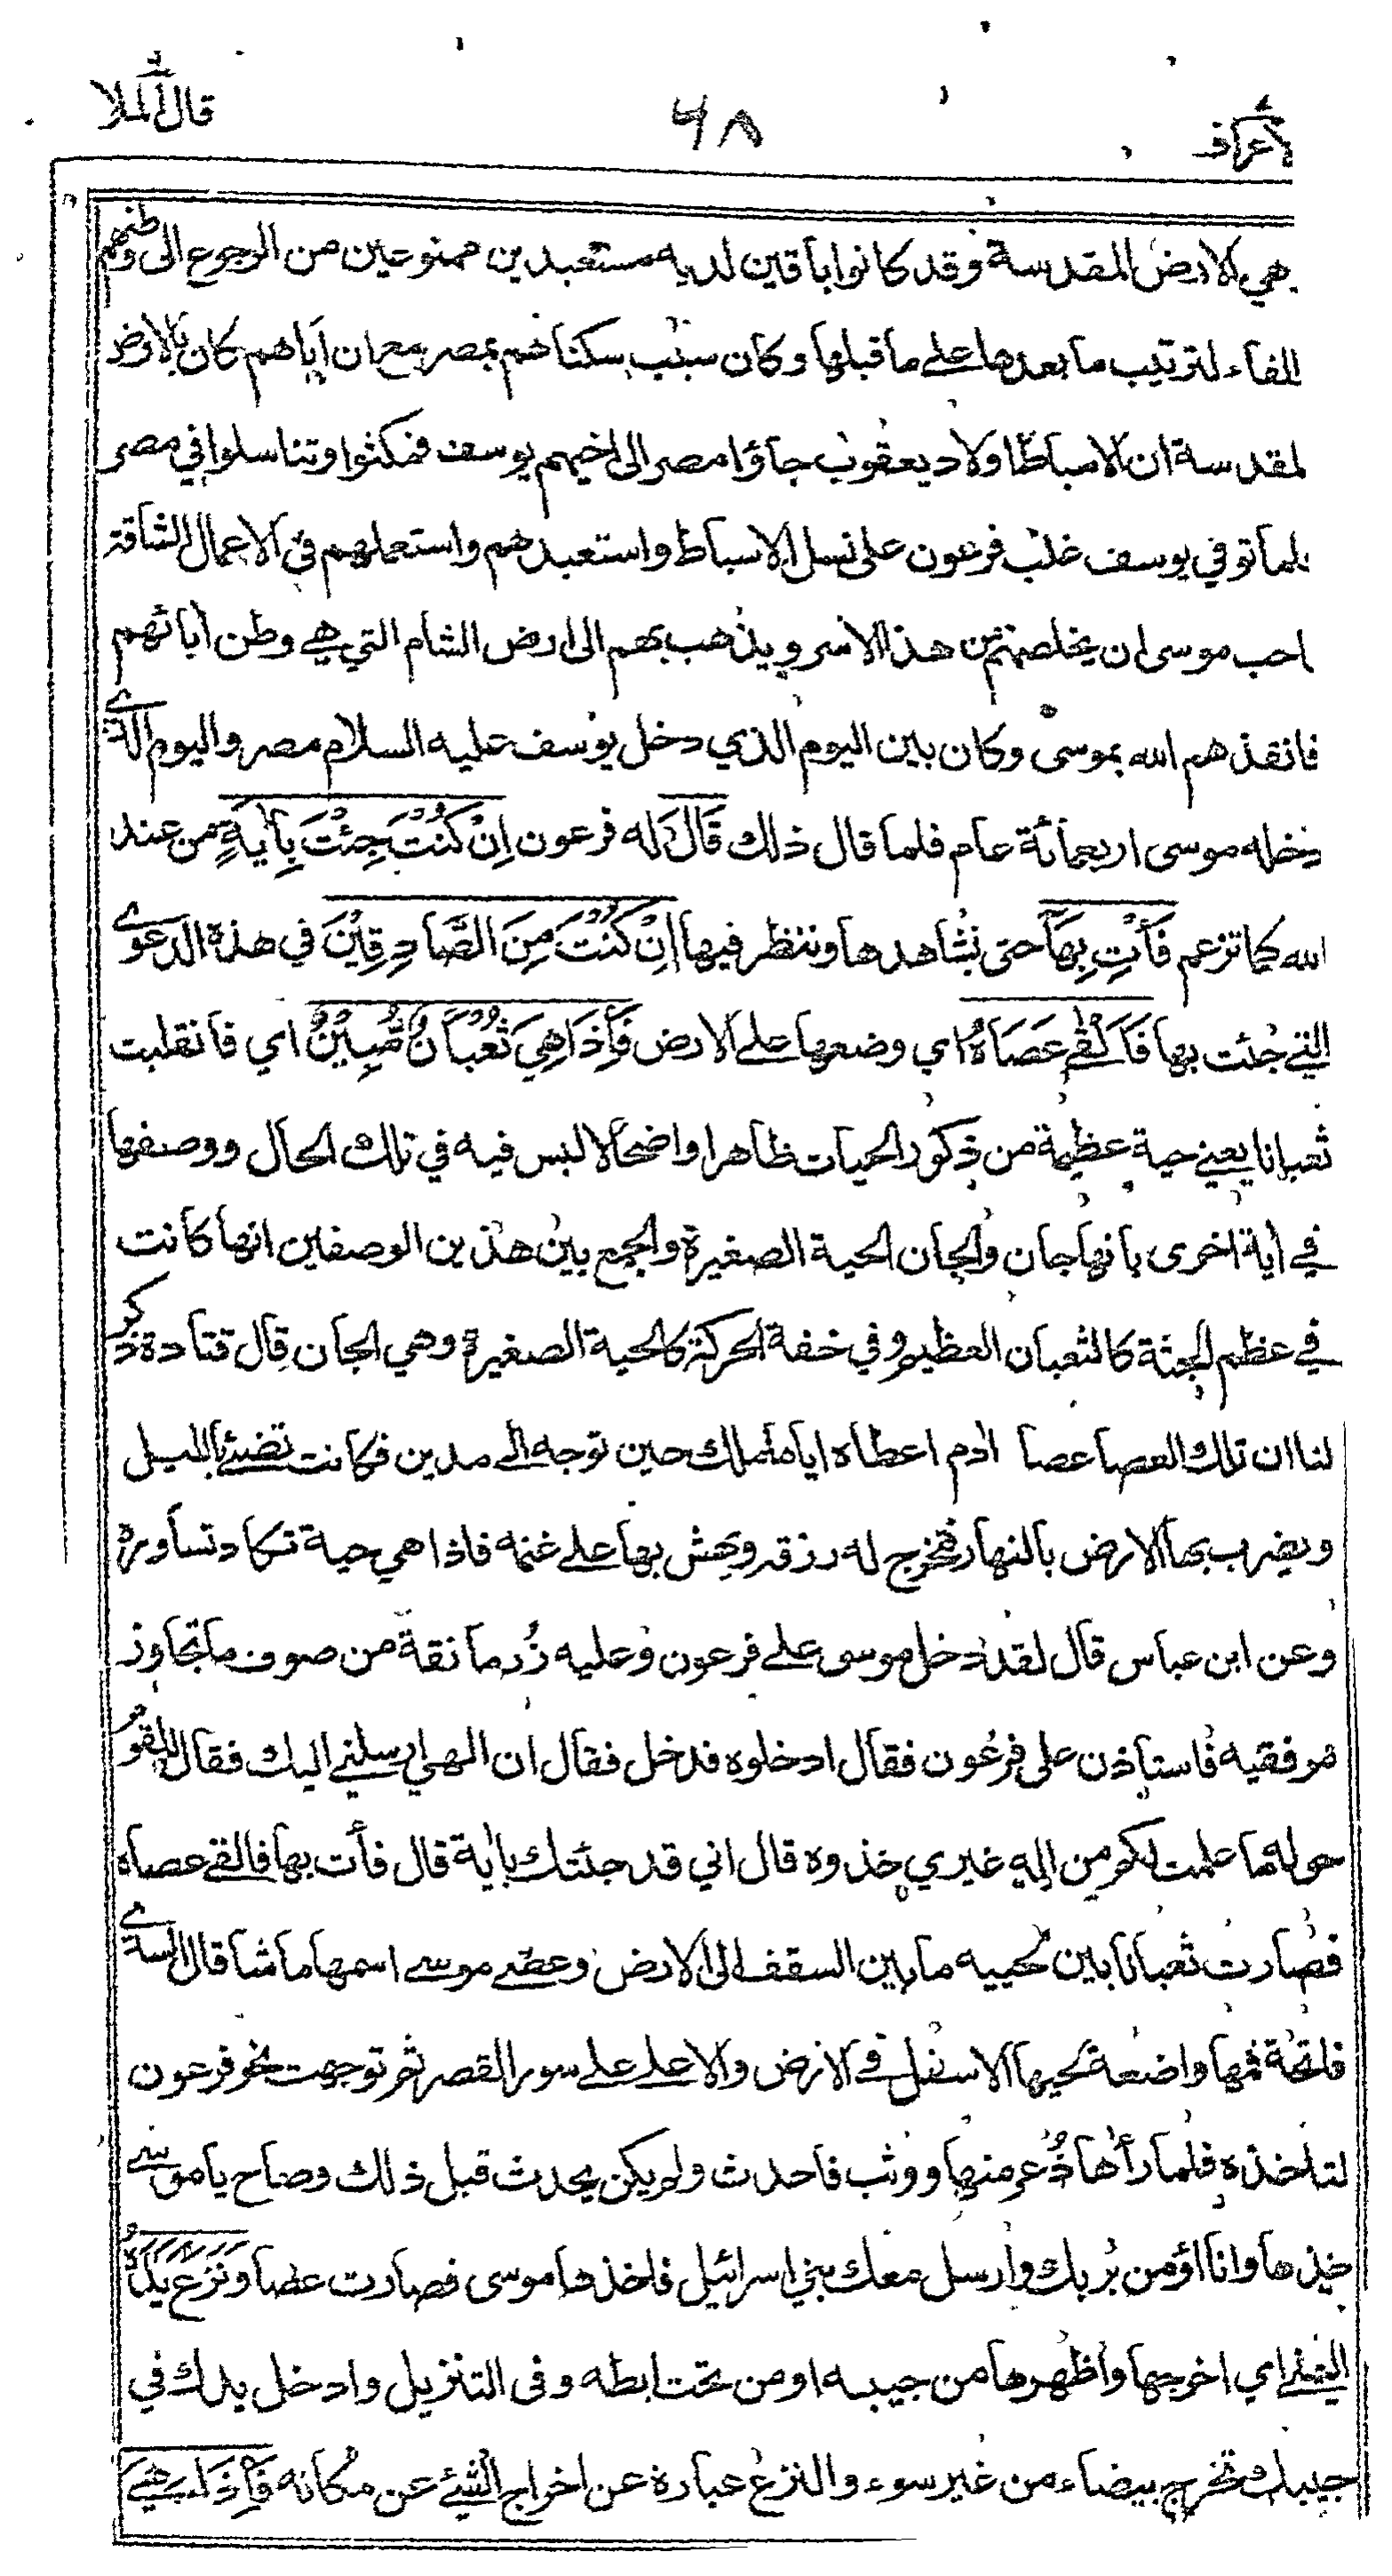 الاعراف
٦٨
قال الملا
هي الارض المقدسة وقد كانوا باقين لديه مستعبدين ممنوعين من الرجوع الى وطنهم
الفاء لترتيب ما بعدها على ما قبلها وكان سبب سكناهم بمصر مع ان اباهم كان بالارض
لمقدسة ان الاسباط اولاد يعقوب جاؤا مصر الى اخيهم يوسف فمكثوا وتناسلوا في مصر
فلما توفي يوسف غلب فرعون على نسل الاسباط واستعبدهم واستعملهم في الاعمال الشاقة
احب موسى ان يخلصهم من هذا الاسر ويذهب بهم الى ارض الشام التي هي وطن اٰبائهم
فانقذهم الله بموسى وكان بين اليوم الذي دخل يوسف عليه السلام مصر واليوم الذي
دخله موسى اربعمائة عام فلما قال ذلك قَالَ له فرعون اِنْ كُنْتَ جِئْتَ بِاٰيَةٍ من عند
الله كما تزعم فَأْتِ بِهَا حتى نشاهدها وننظر فيها اِنْ كُنْتَ مِنَ الصَّادِقِيْنَ في هذه الدعوى
التي جئت بها فَاَلْقٰى عَصَاهُ اي وضعها على الارض فَاِذَا هِيَ ثُعْبَانٌ مُّبِيْنٌ اي فانقلبت
ثعبانا يعني حية عظيمة من ذكور الحيات ظاهرا واضحا لا لبس فيه في تلك الحال ووصفها
في اٰية اخرى بانها جان والجان الحية الصغيرة والجمع بين هذين الوصفين انها كانت
في عظم الجثة كالثعبان العظيم وفي خفة الحركة كالحية الصغيرة وهي الجان قال قتادة ذكر
لنا ان تلك العصا عصا اٰدم اعطاه اياها ملك حين توجه الى مدين فكانت تضيئ بالليل
ويضرب بها الارض بالنهار فتخرج له رزقه ويهش بها على غنمه فاذا هي حية تكاد تساوره
وعن ابن عباس قال لقد دخل موسى على فرعون وعليه زُرمانقة من صوف ما تجاوز
مرفقيه فاستاذن على فرعون فقال ادخلوه فدخل فقال ان الهي ارسلني اليك فقال للقوم
حوله ما علمت لكم من اله غيري خذوه قال اني قد جئتك باٰية قال فأت بها فالقى عصاه
فصارت ثعبانا بين لحييه ما بين السقف الى الارض وعصى موسى اسمها ماشا قال السدي
فاتحة فمها واضعة لحيها الاسفل في الارض والاعلى على سور القصر ثم توجهت نحو فرعون
لتاخذه فلما رأها ذُعر منها ووثب فاحدث ولم يكن يحدث قبل ذلك وصاح يا موسى
خذها وانا اؤمن بربك وارسل معك بني اسرائيل فاخذها موسى فصارت عصا وَنَزَعَ يَدَهُ
اليمنى اي اخرجها واظهرها من جيبه او من تحت ابطه وفى التنزيل وادخل يدك في
جيبك تخرج بيضاء من غير سوء والنزع عبارة عن اخراج الشيئ عن مكانه فَاِذَا هِيَ